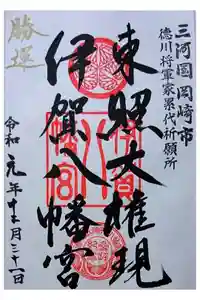 三河國岡崎市
徳川将軍家累代祈願所
東照大権現
伊賀八幡宮
勝運
令和元年十二月三十一日